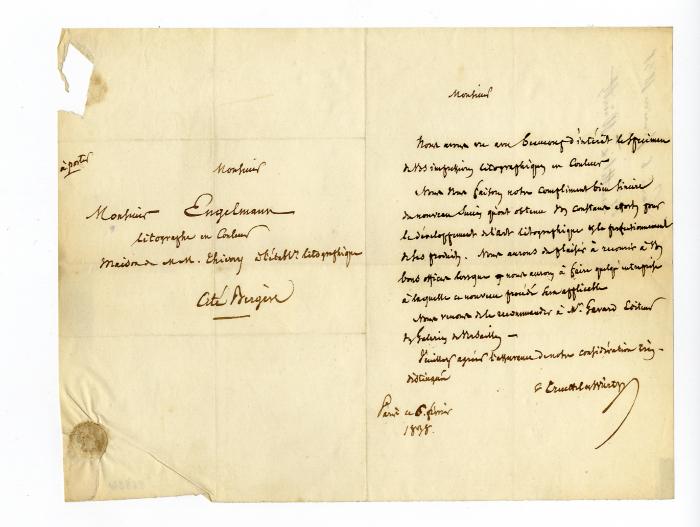 à porter
Monsieur
Monsieur Engelmann
litographe en Couleur
Maison de M.M. Thierry à l'établt. litographique
Cité Bergère
Monsieur
Nous avons vu avec beaucoup d'intérêt le specimen
de vos impressions litographiques en Couleur
Nous vous faisons notre compliment bien sincère
du nouveau succès qu'ont obtenu vos constans efforts pour
le développement de l'art litographique et le perfectionnement
de ses produits. Nous aurons du plaisir à recourir à vos
bons offices lorsque nous aurons à faire quelqe entreprise
à laquelle ce nouveau procédé sera applicable
Nous venons de le recommander à Mr. Gavard Editeur
des Galeries de Versailles —
Veuillez agréer l'assurance de notre considération très-
distinguée
Treuttel et Würtz
Paris ce 6. février
1838.